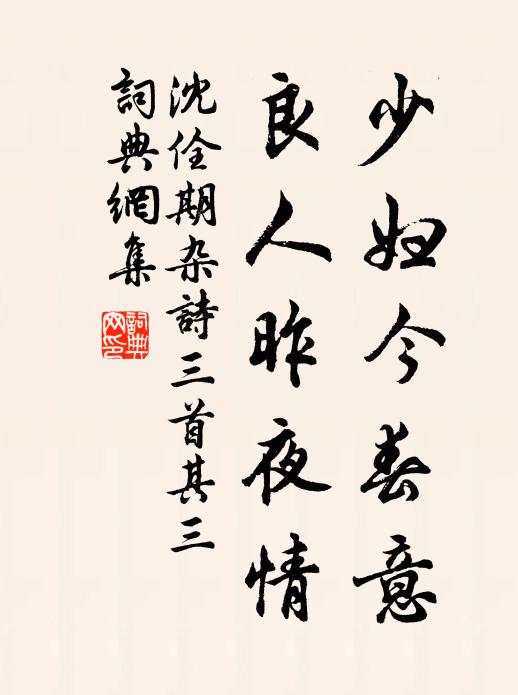 少妇今春意
良人昨夜情
沈佺期杂詩三首其三
詞典網集
詞典
网印